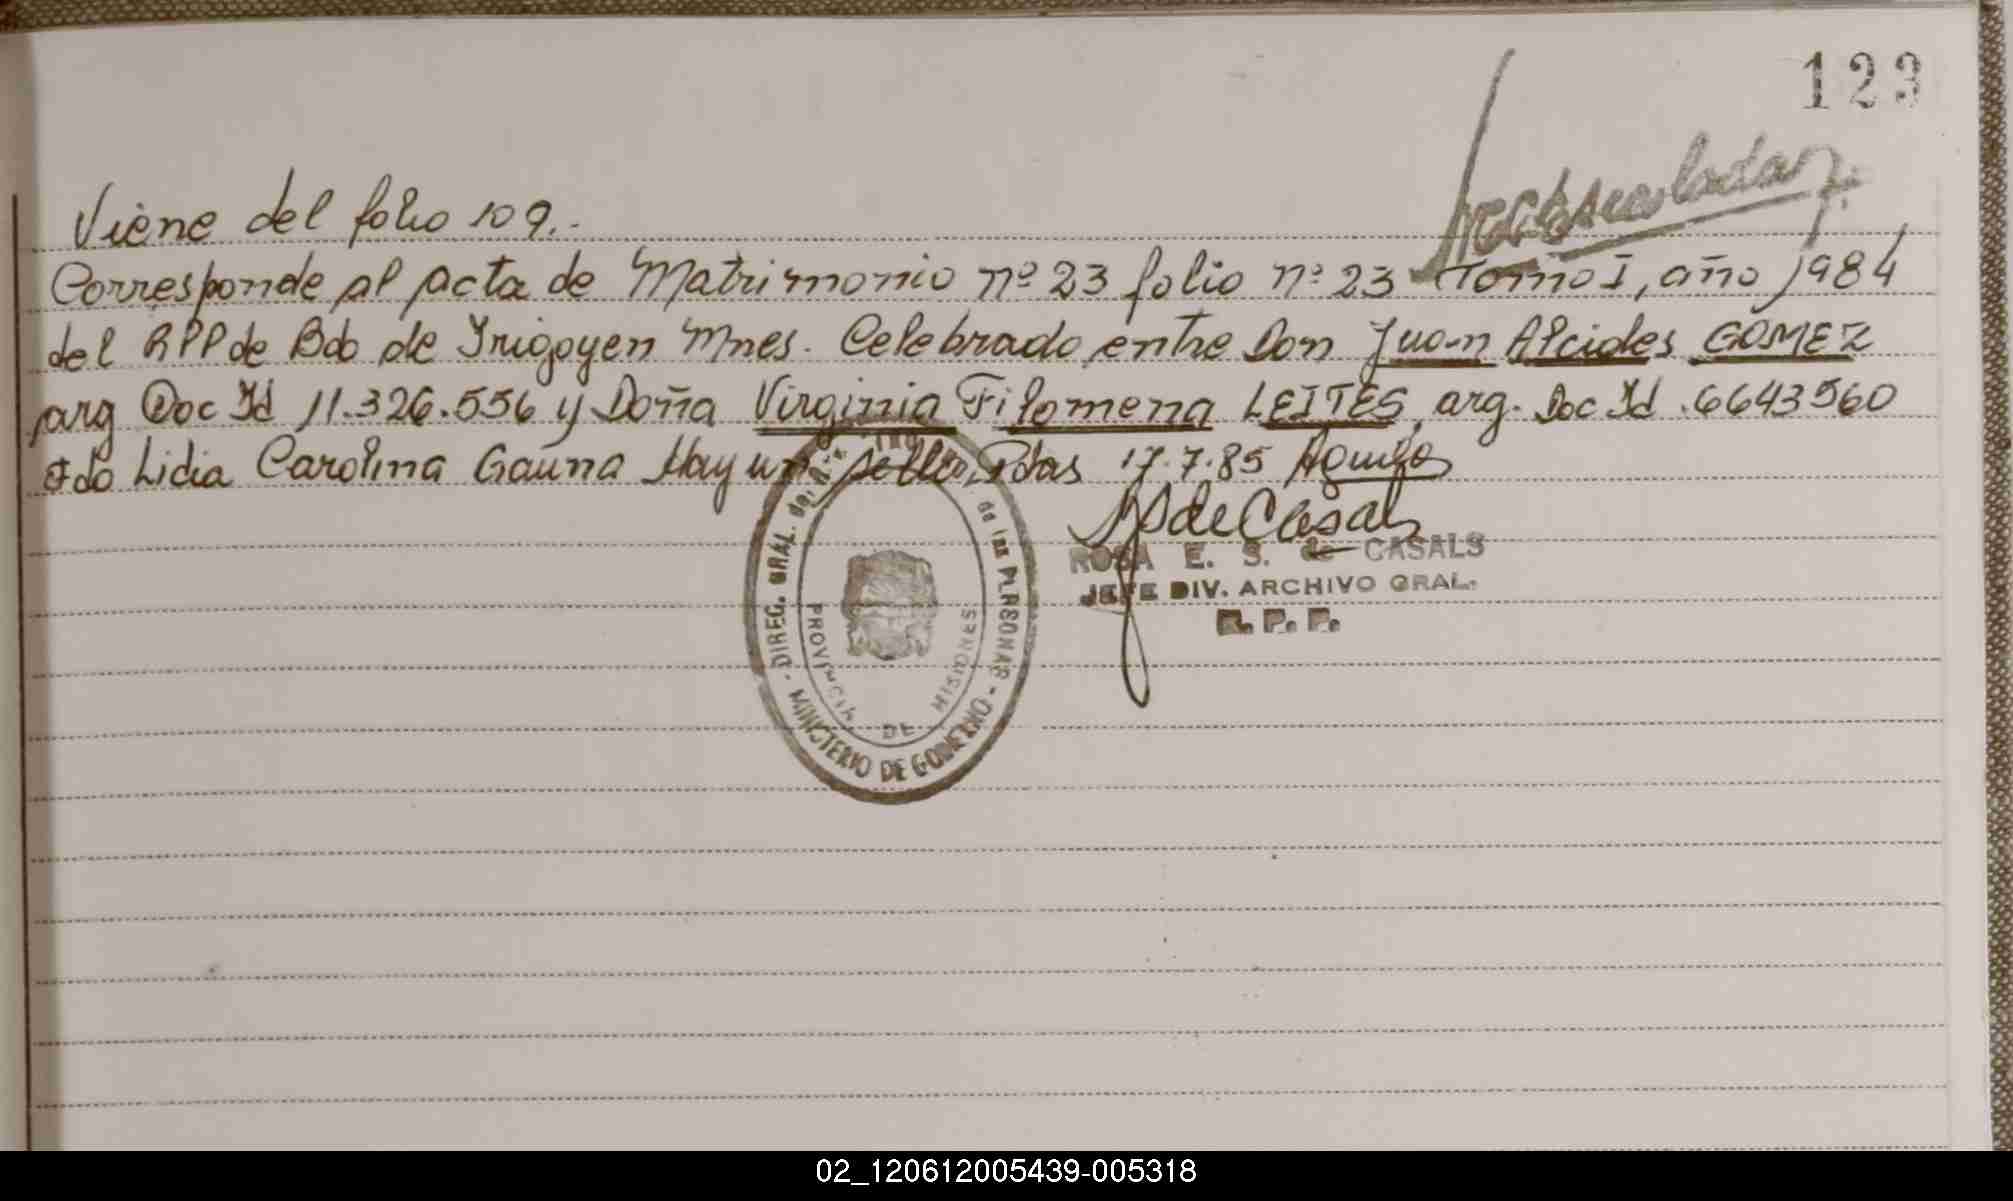 123
Viene del folio 109.-
Corresponde al acta de Matrimonio nº 23 folio nº 23 Tomo I, año 1984
del RPP de Bdo de Irigoyen Mnes. Celebrado entre Don Juan Alcides GOMEZ
arg Doc Id 11.326.556 y Doña Virginia Filomena LEITES, arg. Doc Id .6643560
Fdo Lidia Carolina Gauna Hay un sello, Pdas 17.7.85
de Casals
ROSA E. S. de CASALS
JEFE DIV. ARCHIVO GRAL.
R. P. P.
DIREC. GRAL. del de las PERSONAS
MINISTERIO DE GOBIERNO
PROVINCIA DE MISIONES
02_120612005439-005318